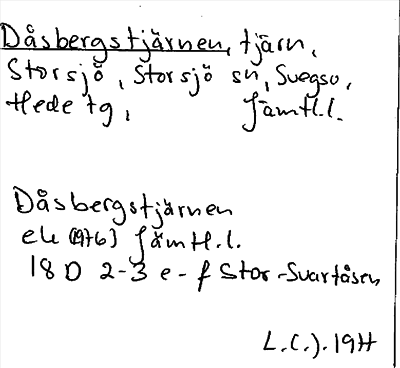 Dåsbergstjärnen, tjärn,
Storsjö, Storsjö sn, Svegso,
Hede tg, Jämtl.l.
Dåsbergstjärnen
ek (1976) Jämtl.l.
18 D 2-3 e-f Stor-Svartåsen